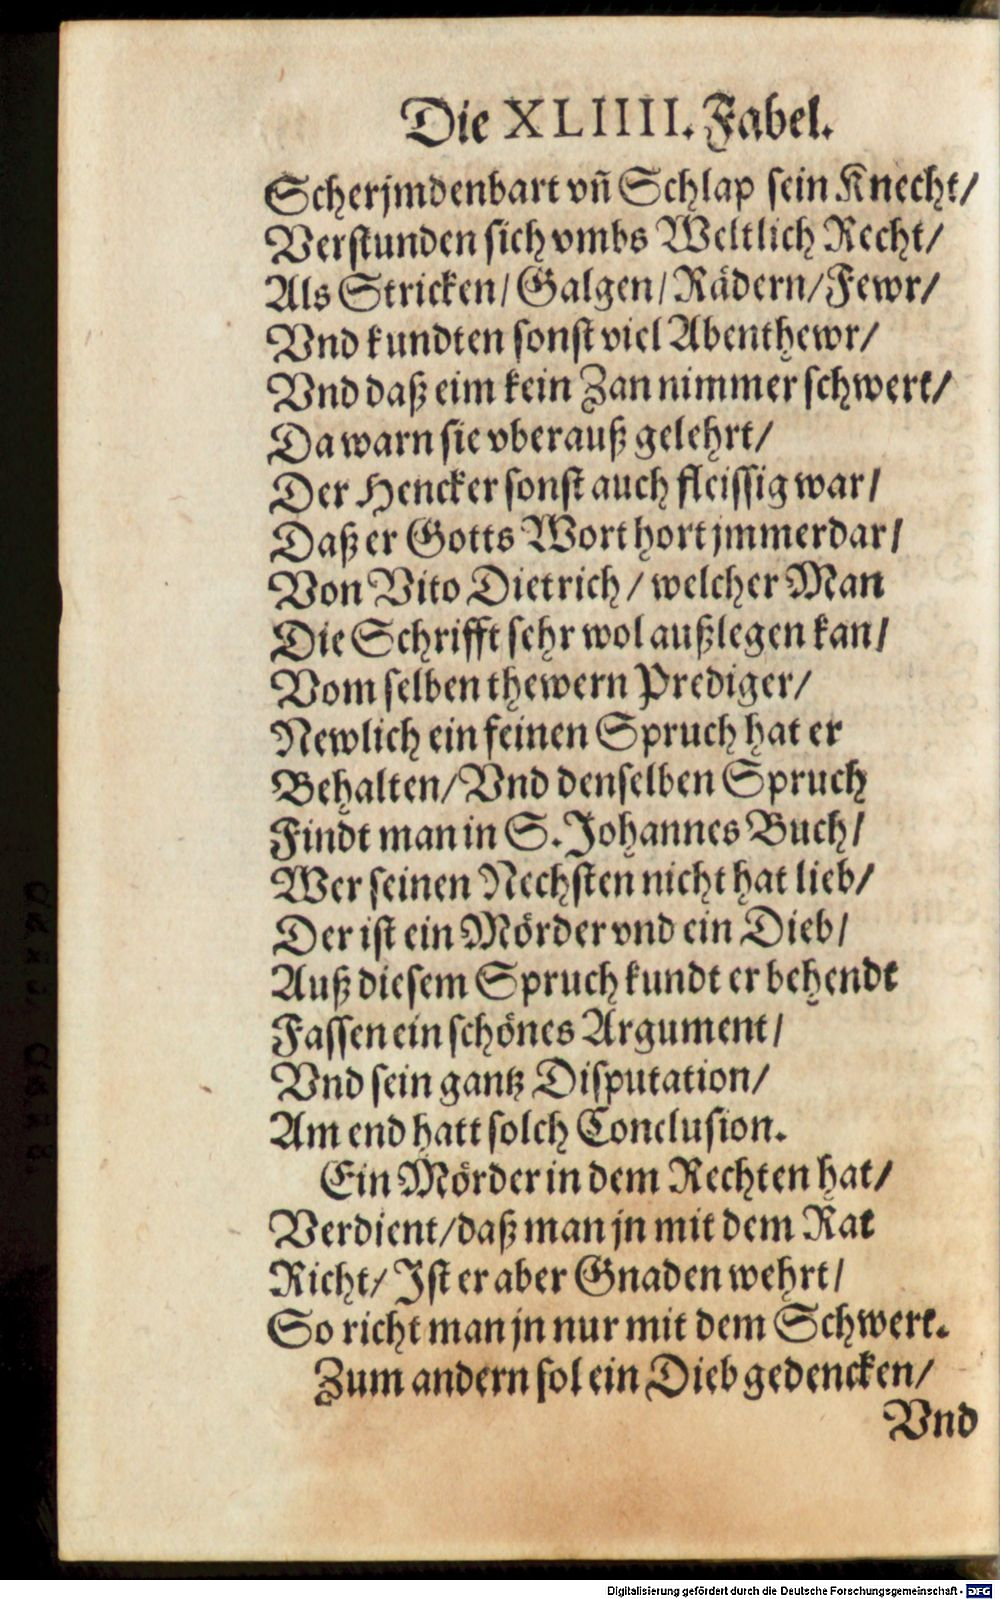 Die XLIIII. Fabel.
Scherjmdenbart vñ Schlap sein Knecht/
Verstunden sich vmbs Weltlich Recht/
Als Stricken/ Galgen/ Rädern/ Fewr/
Vnd kundten sonst viel Abenthewr/
Vnd daß eim kein Zan nimmer schwert/
Da warn sie vberauß gelehrt/
Der Hencker sonst auch fleissig war/
Daß er Gotts Wort hort jmmerdar/
Von Vito Dietrich/ welcher Man
Die Schrifft sehr wol außlegen kan/
Vom selben thewern Prediger/
Newlich ein feinen Spruch hat er
Behalten/ Vnd denselben Spruch
Findt man in S. Johannes Buch/
Wer seinen Nechsten nicht hat lieb/
Der ist ein Mörder vnd ein Dieb/
Auß diesem Spruch kundt er behendt
Fassen ein schönes Argument/
Vnd sein gantz Disputation/
Am end hatt solch Conclusion.
Ein Mörder in dem Rechten hat/
Verdient/ daß man jn mit dem Rat
Richt/ Ist er aber Gnaden wehrt/
So richt man jn nur mit dem Schwert.
Zum andern sol ein Dieb gedencken/
Vnd
Digitalisierung gefördert durch die Deutsche Forschungsgemeinschaft - DFG